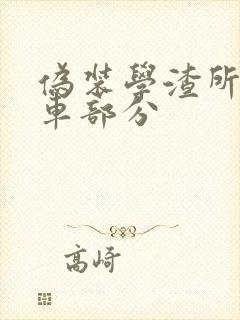 偽裝學渣所
車部分
高崎